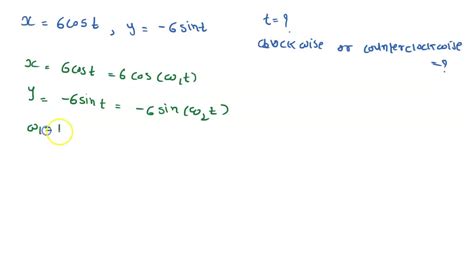 x = 6cost , y = -6sint
t = ?
clockwise or counterclockwise = ?
x = 6cost = 6cos(ω₁t)
y = -6sint = -6sin(ω₂t)
ω₁ = 1